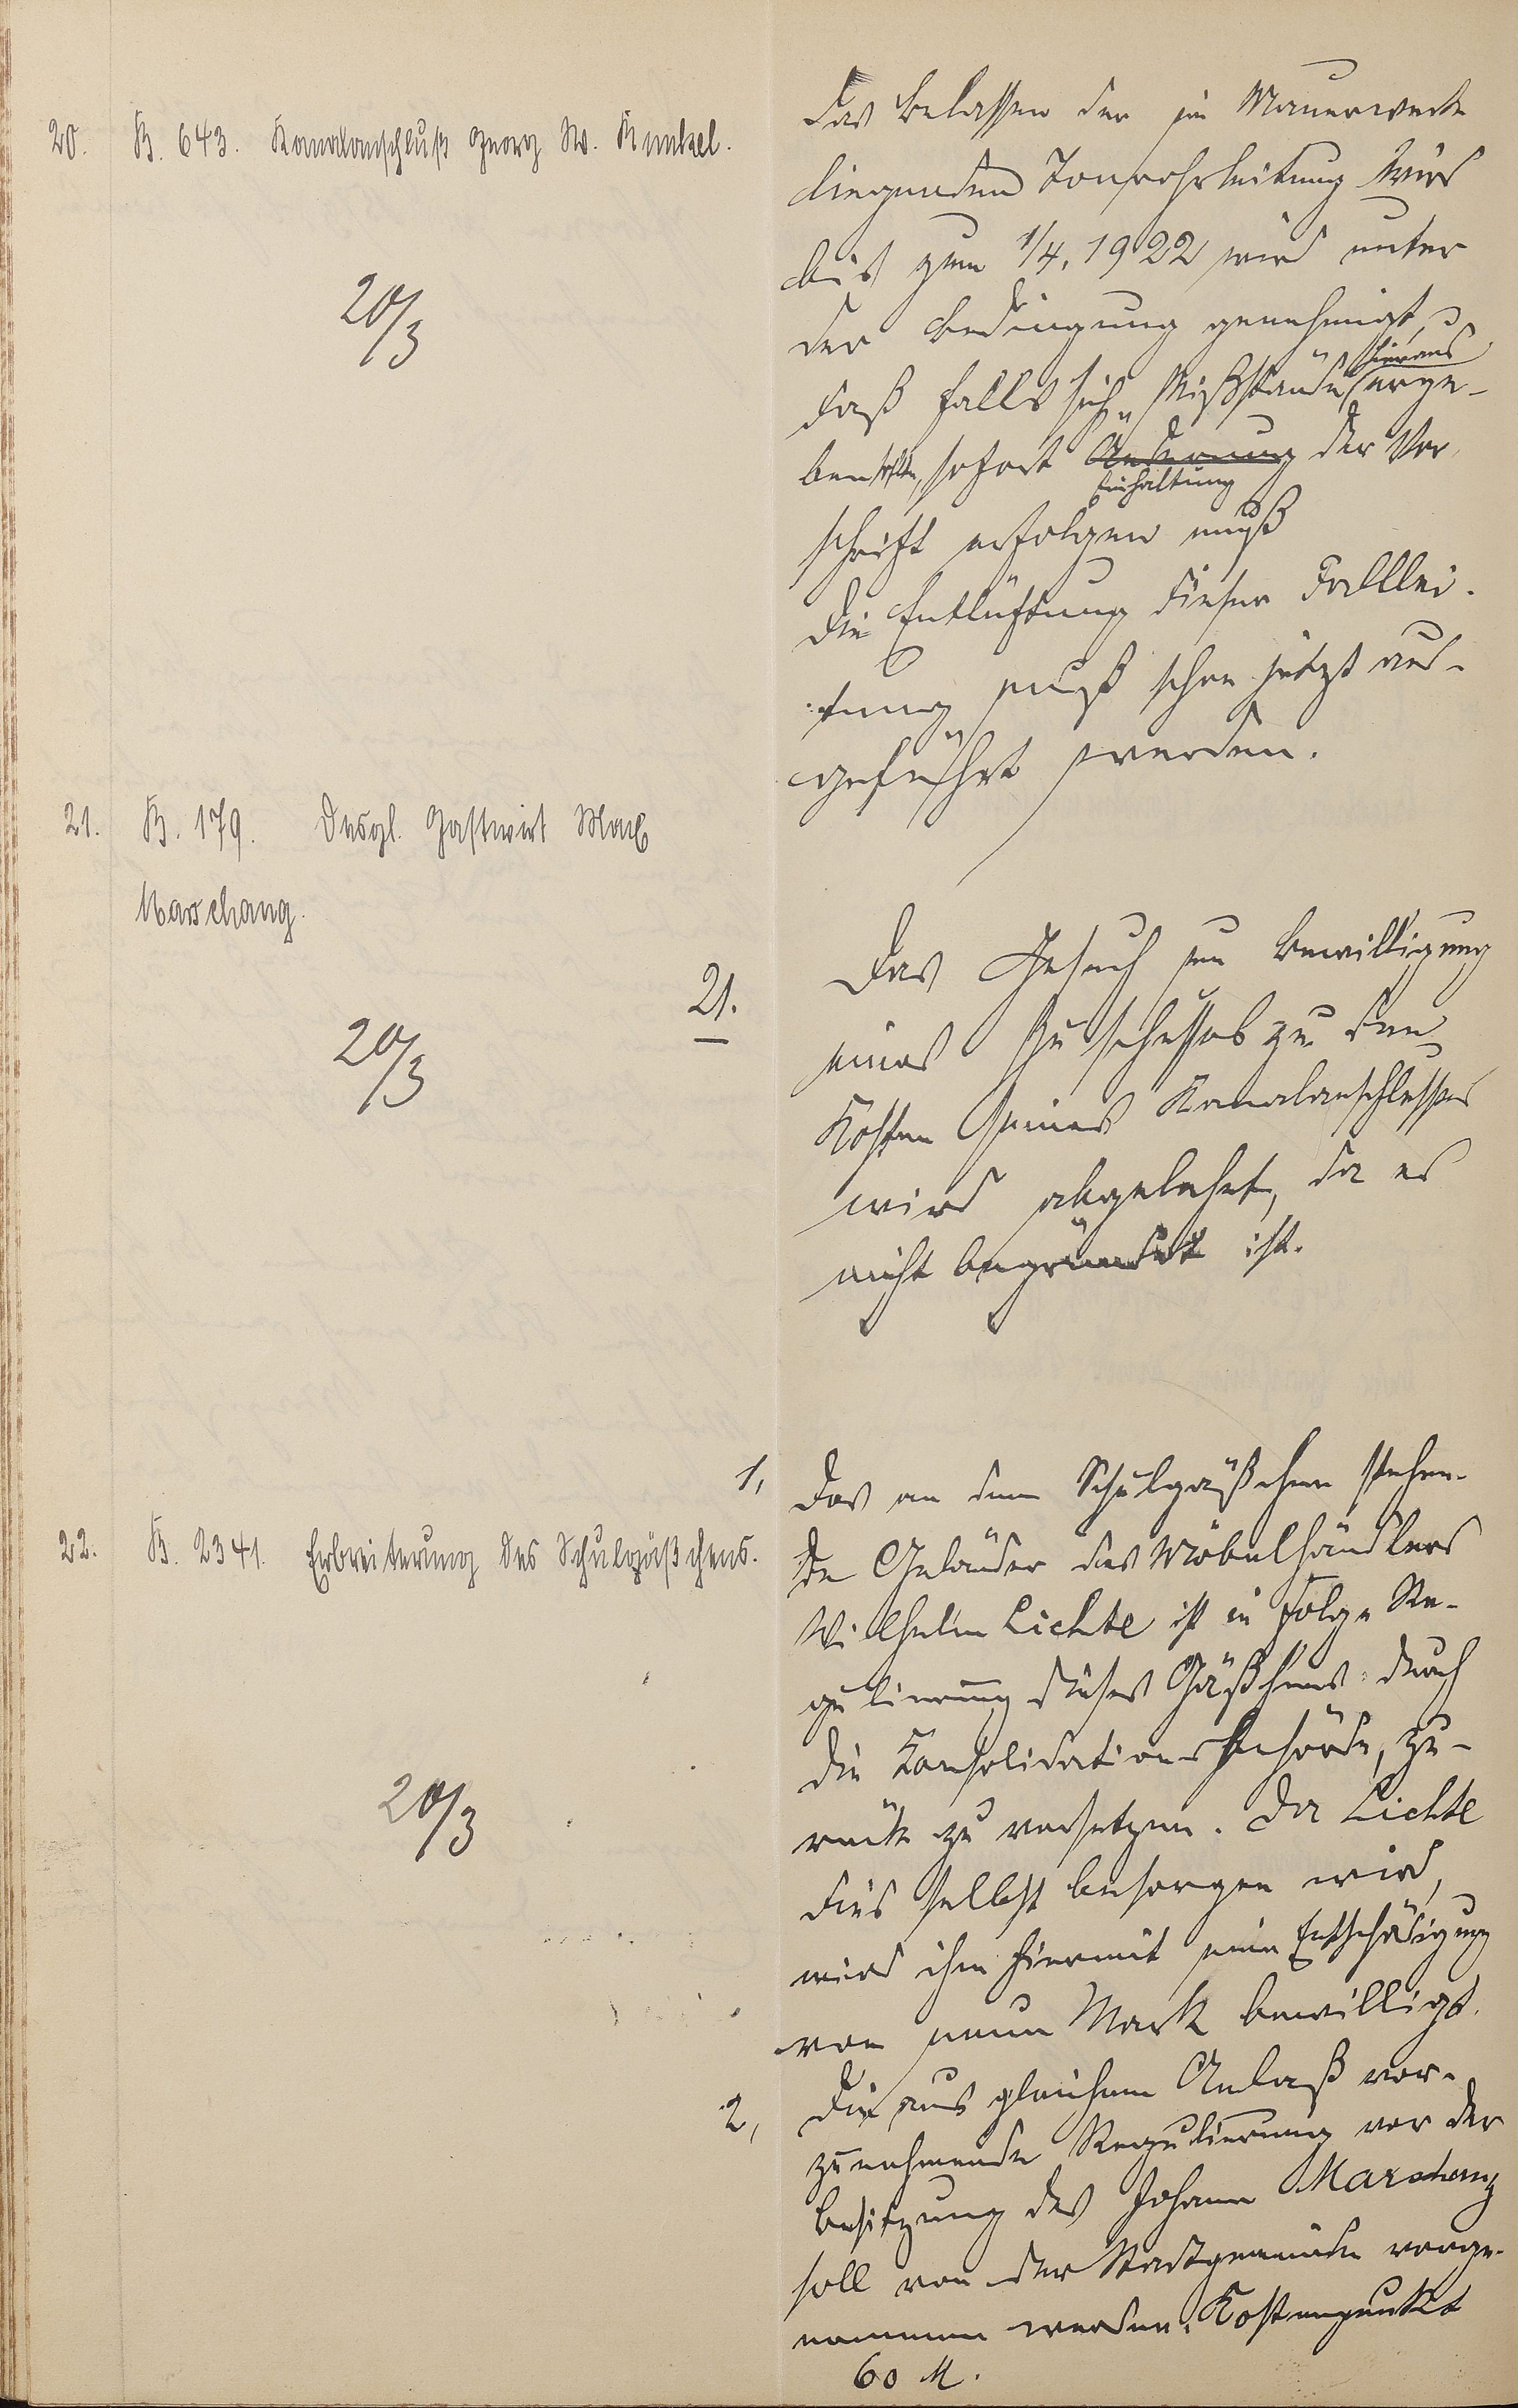 20. B. 643. Kanalanschluß Georg W. Kunkel.
20/3
Das Belassen der im Mauerwerke
liegenden Tonrohrleitung wird
bis zum 1/4. 1922 wird unter
der Bedingung genehmigt,
daß falls sich Mißstände hieraus erge-
ben sollte, sofort Änderung Einhaltung der Vor-
schrift erfolgen muß
Die Entlüftung dieser Falllei-
tung muß schon jetzt aus-
geführt werden.
21. B. 179. Desgl. Gastwirt Max
Marschang.
20/3
21. Das Gesuch um Bewilligung
eines Zuschusses zu den
Kosten seines Kanalanschlusses
wird abgelehnt, da es
nicht begründet ist.
22. B. 2341. Erbreiterung des Schulgäßchens.
20/3
1, Das an dem Schulgäßchen stehen-
de Geländer des Möbelhändlers
Wilhelm Lichte ist in Folge Re-
gulierung dieses Gäßchens durch
die Konsolidationsbehörde, zu-
rück zu versetzen. Da Lichte
dies selbst besorgen wird,
wird ihm hiermit eine Entschädigung
von neun Mark bewilligt.
2, Die aus gleichem Anlaß vor-
zunehmende Regulierung vor der
Besitzung des Johann Marschang
soll von der Stadtgemeinde vorge-
nommen werden. Kostenpunkt
60 M.